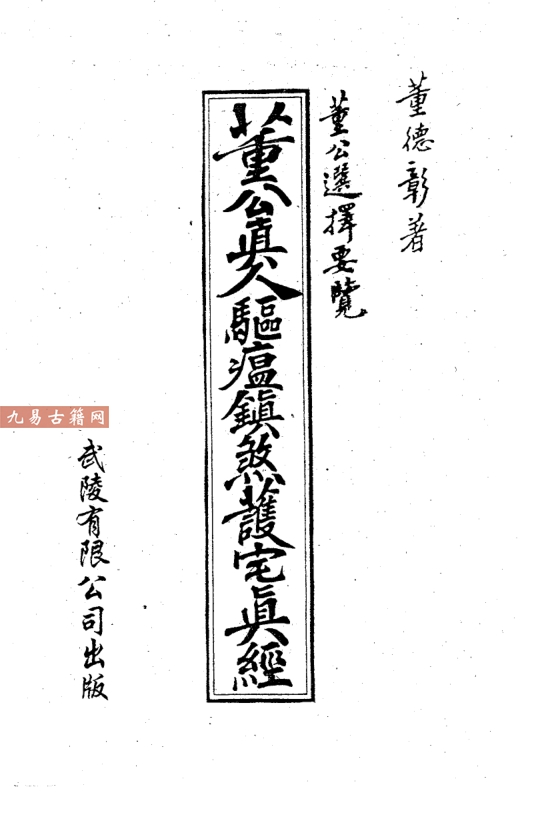 董德彰著
董公選擇要覽
董公真人驅瘟鎮煞護宅真經
武陵有限公司出版
九易古籍网